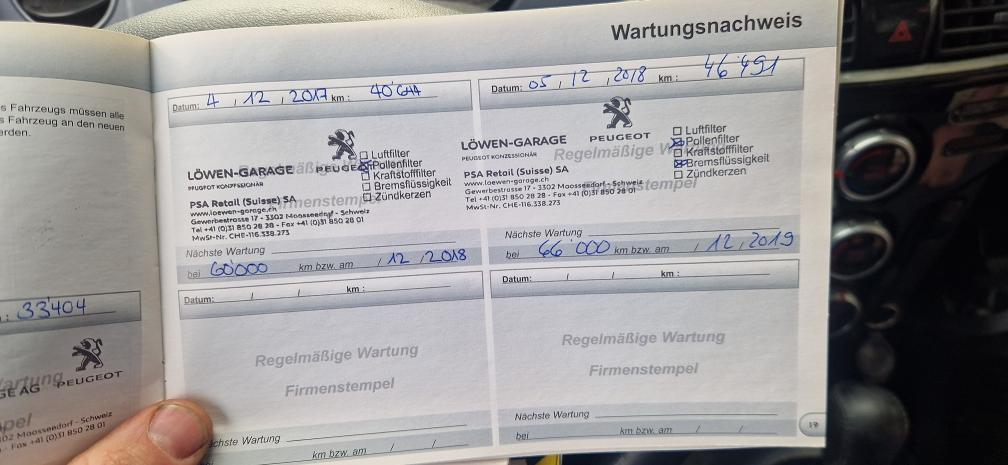 Wartungsnachweis
s Fahrzeugs müssen alle
s Fahrzeug an den neuen
erden.
: 33'404
PEUGEOT
GE AG
02 Moosseedorf - Schweiz
- Fax +41 (0)31 850 28 01
Datum: 4 , 12 , 2017 km :
Regelmäßige Wartung
Firmenstempel
LÖWEN-GARAGE
PEUGEOT KONZESSIONÄR
PEUGEOT
Luftfilter
Pollenfilter
Kraftstofffilter
Bremsflüssigkeit
Zündkerzen
PSA Retail (Suisse) SA
www.loewen-garage.ch
Gewerbestrasse 17 - 3302 Moosseedorf - Schweiz
Tel +41 (0)31 850 28 28 - Fax +41 (0)31 850 28 01
MwSt-Nr. CHE-116.338.273
Nächste Wartung
bei 60'000 km bzw. am / 12 , 2018
Datum: 05 , 12 , 2018 km : 46'491
Regelmäßige Wartung
Firmenstempel
LÖWEN-GARAGE
PEUGEOT KONZESSIONÄR
PEUGEOT
Luftfilter
Pollenfilter
Kraftstofffilter
Bremsflüssigkeit
Zündkerzen
PSA Retail (Suisse) SA
www.loewen-garage.ch
Gewerbestrasse 17 - 3302 Moosseedorf - Schweiz
Tel +41 (0)31 850 28 28 - Fax +41 (0)31 850 28 01
MwSt-Nr. CHE-116.338.273
Nächste Wartung
bei 66'000 km bzw. am / 12 , 2019
Datum: / / km :
Regelmäßige Wartung
Firmenstempel
chste Wartung
km bzw. am / /
Datum: / / km :
Regelmäßige Wartung
Firmenstempel
Nächste Wartung
bei km bzw. am / /